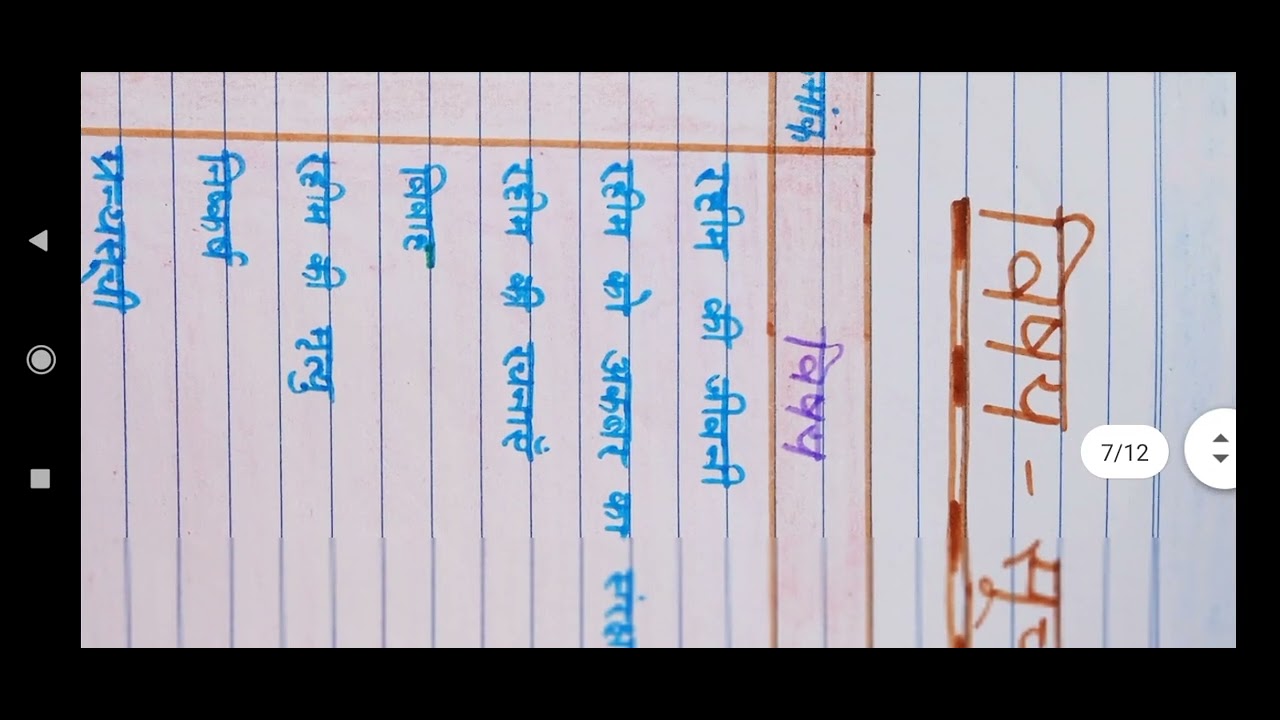 विषय - सू
मांक विषय
रहीम की जीवनी
रहीम को अकबर का संरक्ष
रहीम की रचनाएँ
विवाह
रहीम की मृत्यु
निष्कर्ष
ग्रन्थसूची
7/12